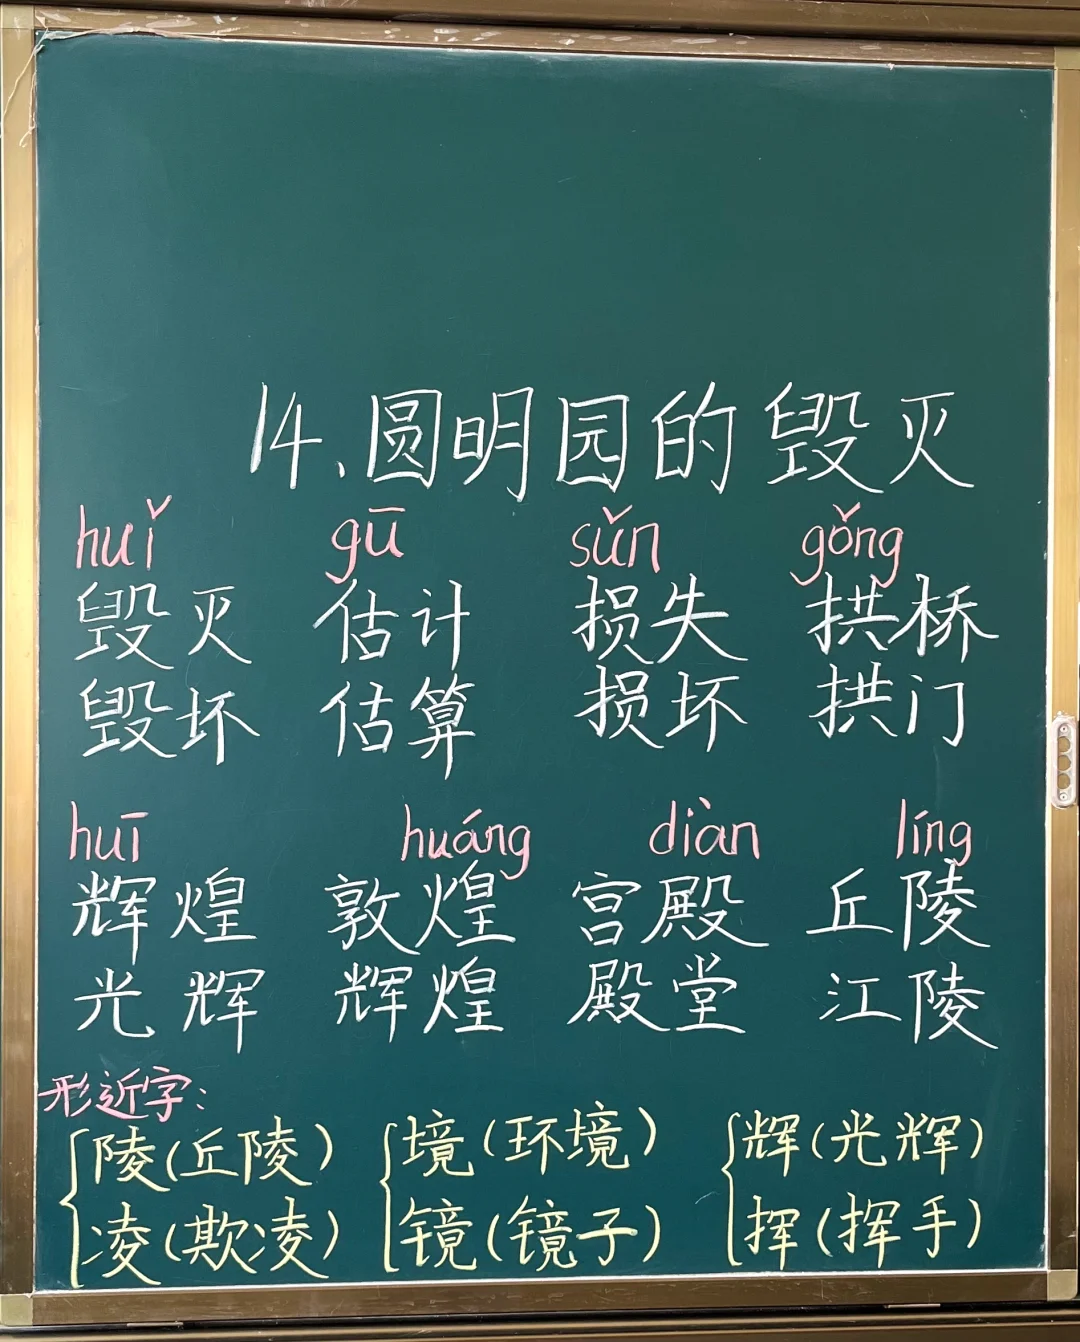 14、圆明园的毁灭
huǐ gū sǔn gǒng
毁灭 估计 损失 拱桥
毁坏 估算 损坏 拱门
huī huáng diàn líng
辉煌 敦煌 宫殿 丘陵
光辉 辉煌 殿堂 江陵
形近字：
陵(丘陵) 境(环境) 辉(光辉)
凌(欺凌) 镜(镜子) 挥(挥手)